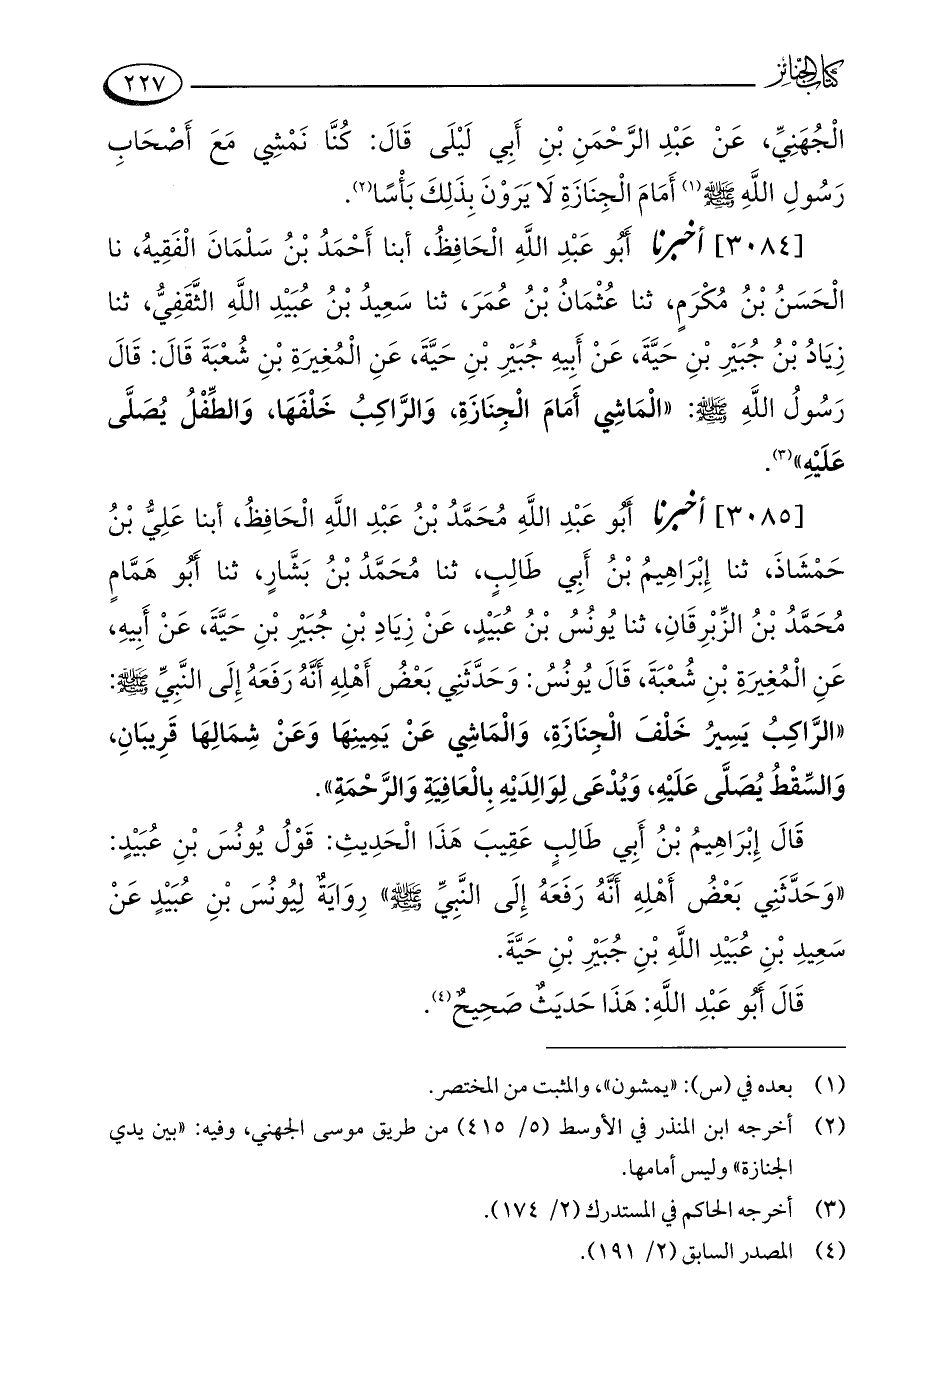 كتاب الجنائز
٢٢٧
الْجُهَنِيِّ، عَنْ عَبْدِ الرَّحْمَنِ بْنِ أَبِي لَيْلَى قَالَ: كُنَّا نَمْشِي مَعَ أَصْحَابِ
رَسُولِ اللَّهِ ﷺ(١) أَمَامَ الْجِنَازَةِ لَا يَرَوْنَ بِذَلِكَ بَأْسًا(٢).
[٣٠٨٤] أخبرنا أَبُو عَبْدِ اللَّهِ الْحَافِظُ، أبنا أَحْمَدُ بْنُ سَلْمَانَ الْفَقِيهُ، نا
الْحَسَنُ بْنُ مُكْرَمٍ، ثنا عُثْمَانُ بْنُ عُمَرَ، ثنا سَعِيدُ بْنُ عُبَيْدِ اللَّهِ الثَّقَفِيُّ، ثنا
زِيَادُ بْنُ جُبَيْرِ بْنِ حَيَّةَ، عَنْ أَبِيهِ جُبَيْرِ بْنِ حَيَّةَ، عَنِ الْمُغِيرَةِ بْنِ شُعْبَةَ قَالَ: قَالَ
رَسُولُ اللَّهِ ﷺ: «الْمَاشِي أَمَامَ الْجِنَازَةِ، وَالرَّاكِبُ خَلْفَهَا، وَالطِّفْلُ يُصَلَّى
عَلَيْهِ»(٣).
[٣٠٨٥] أخبرنا أَبُو عَبْدِ اللَّهِ مُحَمَّدُ بْنُ عَبْدِ اللَّهِ الْحَافِظُ، أبنا عَلِيُّ بْنُ
حَمْشَاذَ، ثنا إِبْرَاهِيمُ بْنُ أَبِي طَالِبٍ، ثنا مُحَمَّدُ بْنُ بَشَّارٍ، ثنا أَبُو هَمَّامٍ
مُحَمَّدُ بْنُ الزِّبْرِقَانِ، ثنا يُونُسُ بْنُ عُبَيْدٍ، عَنْ زِيَادِ بْنِ جُبَيْرِ بْنِ حَيَّةَ، عَنْ أَبِيهِ،
عَنِ الْمُغِيرَةِ بْنِ شُعْبَةَ، قَالَ يُونُسُ: وَحَدَّثَنِي بَعْضُ أَهْلِهِ أَنَّهُ رَفَعَهُ إِلَى النَّبِيِّ ﷺ:
«الرَّاكِبُ يَسِيرُ خَلْفَ الْجِنَازَةِ، وَالْمَاشِي عَنْ يَمِينِهَا وَعَنْ شِمَالِهَا قَرِيبَانِ،
وَالسِّقْطُ يُصَلَّى عَلَيْهِ، وَيُدْعَى لِوَالِدَيْهِ بِالْعَافِيَةِ وَالرَّحْمَةِ».
قَالَ إِبْرَاهِيمُ بْنُ أَبِي طَالِبٍ عَقِيبَ هَذَا الْحَدِيثِ: قَوْلُ يُونُسَ بْنِ عُبَيْدٍ:
«وَحَدَّثَنِي بَعْضُ أَهْلِهِ أَنَّهُ رَفَعَهُ إِلَى النَّبِيِّ ﷺ» رِوَايَةٌ لِيُونُسَ بْنِ عُبَيْدٍ عَنْ
سَعِيدِ بْنِ عُبَيْدِ اللَّهِ بْنِ جُبَيْرِ بْنِ حَيَّةَ.
قَالَ أَبُو عَبْدِ اللَّهِ: هَذَا حَدِيثٌ صَحِيحٌ(٤).
(١) بعده في (س): «يمشون»، والمثبت من المختصر.
(٢) أخرجه ابن المنذر في الأوسط (٥/ ٤١٥) من طريق موسى الجهني، وفيه: «بين يدي
الجنازة» وليس أمامها.
(٣) أخرجه الحاكم في المستدرك (٢/ ١٧٤).
(٤) المصدر السابق (٢/ ١٩١).